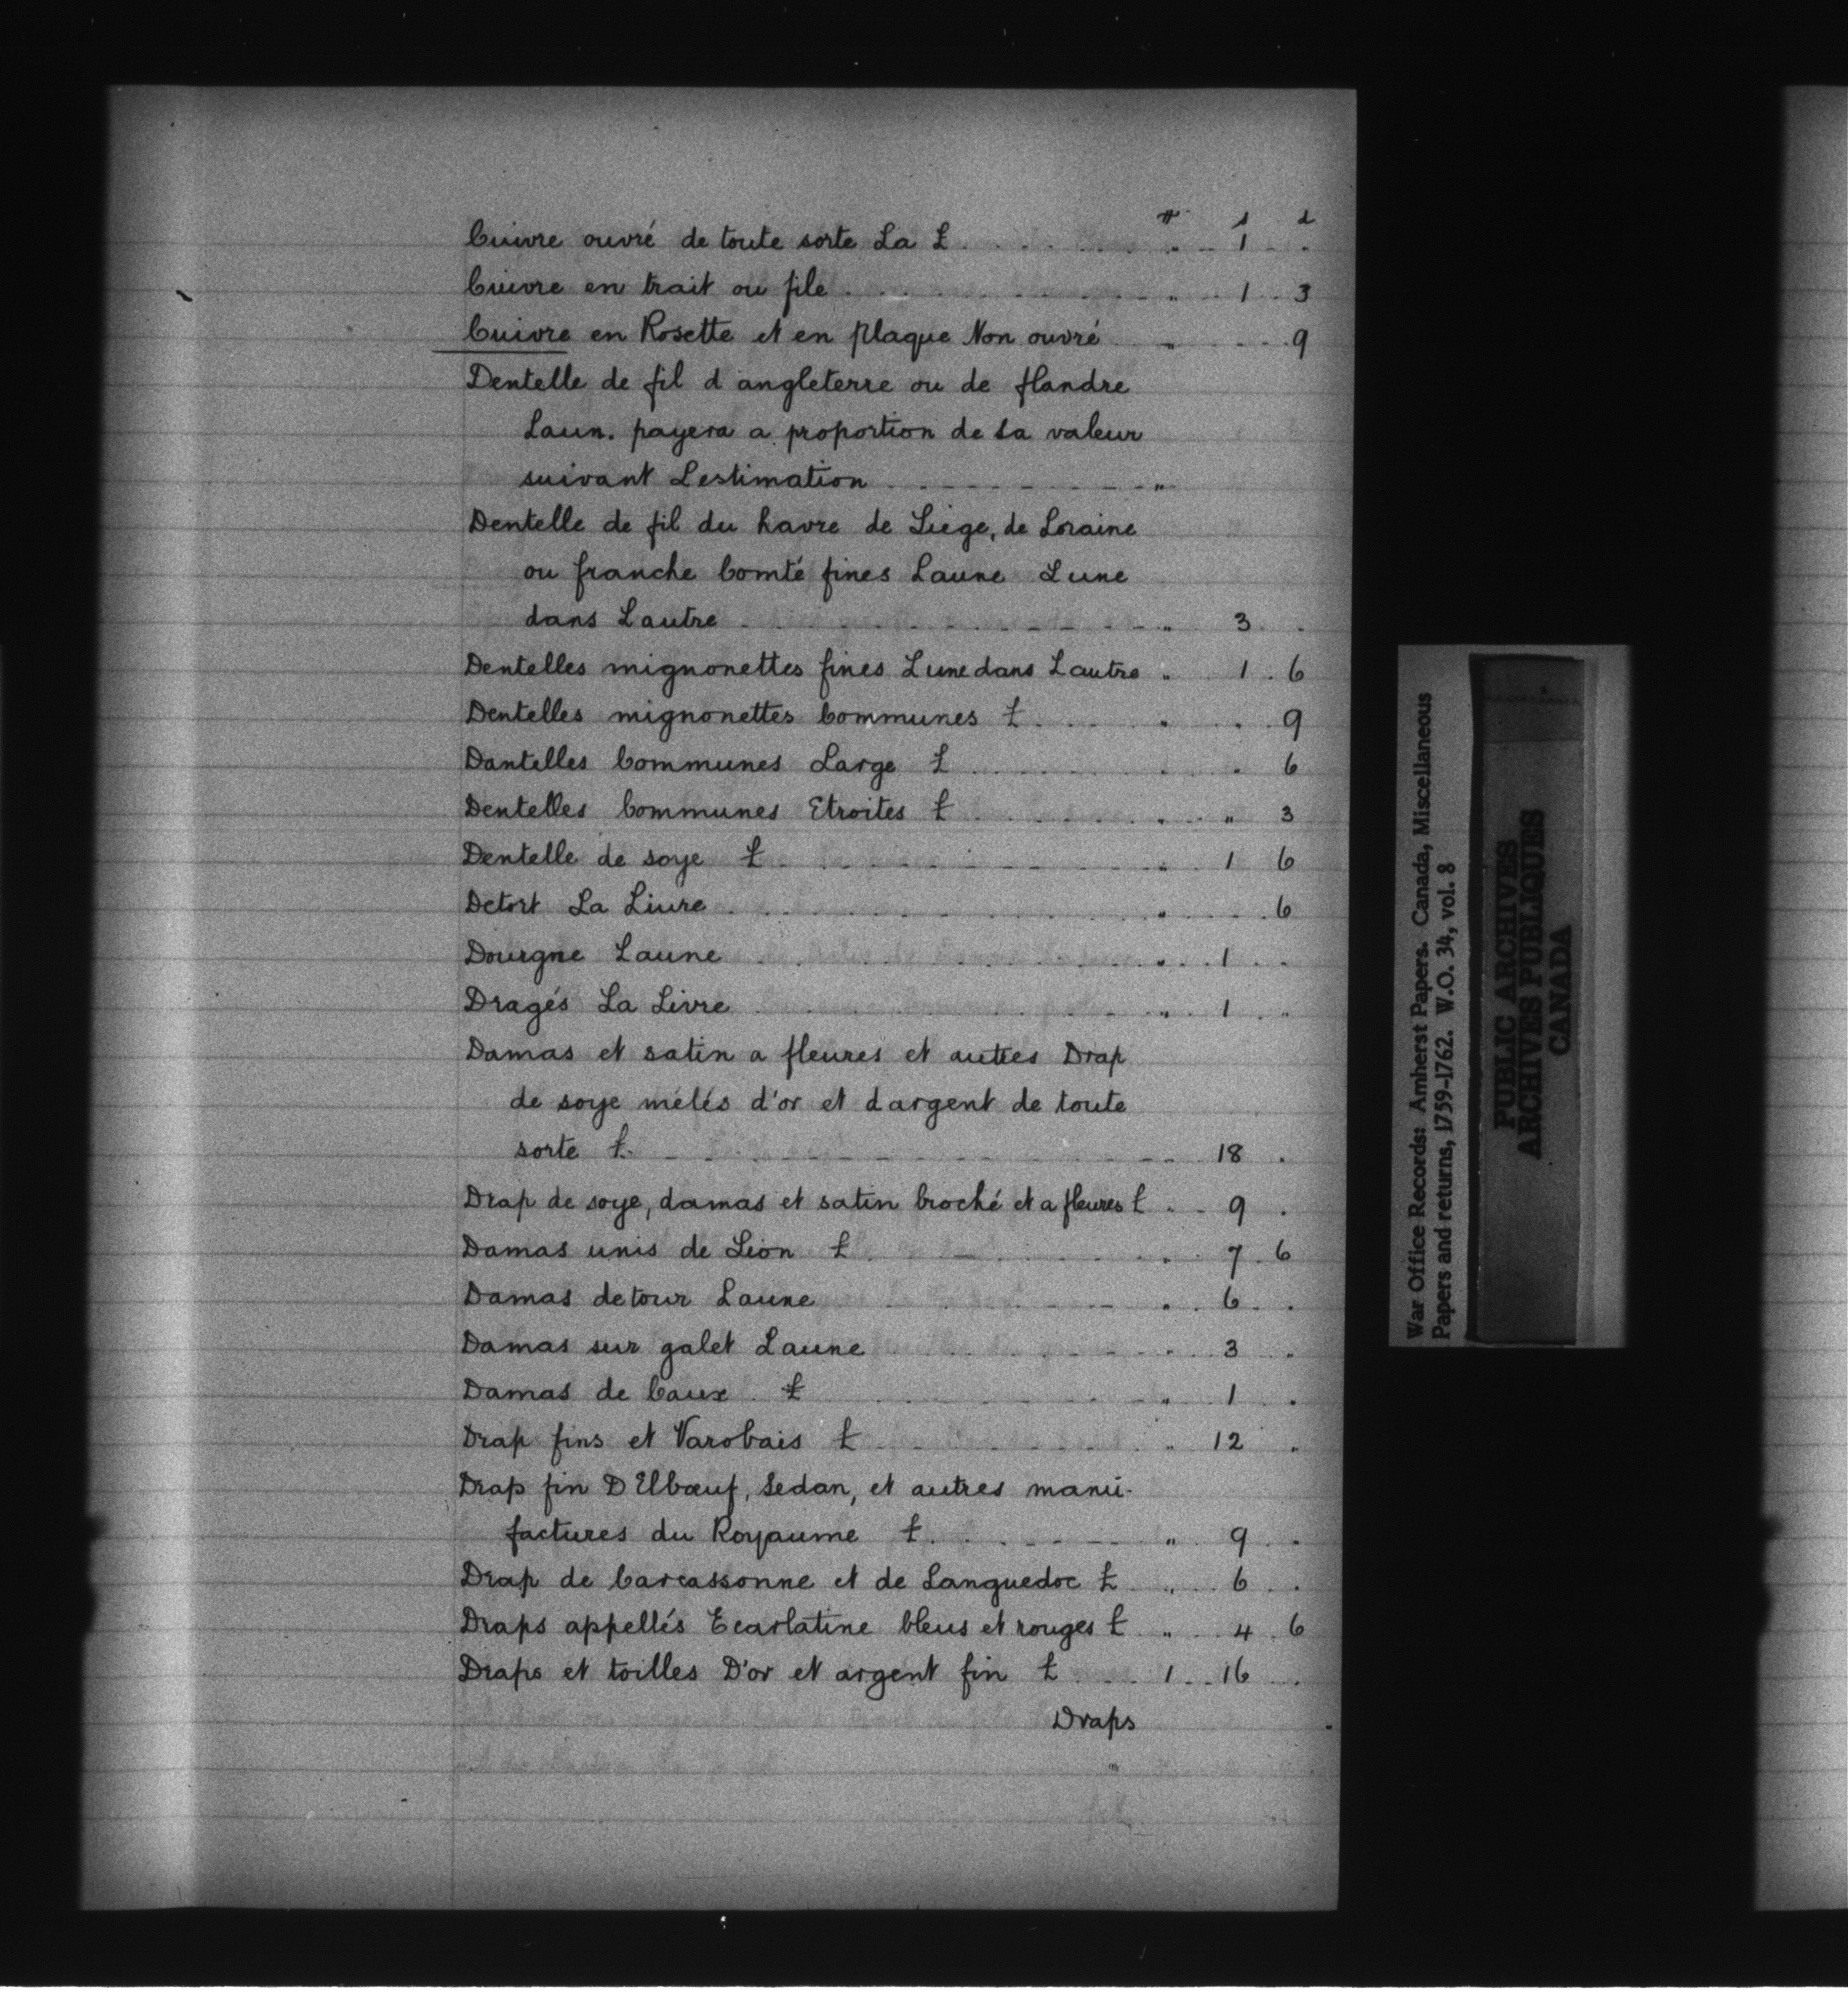 # s d
Cuivre ouvré de toute sorte La £ . . . . . . . " 1 .
Cuivre en trait ou file . . . . . . . " 1 3
Cuivre en Rosette et en plaque Non ouvré " . . . 9
Dentelle de fil d angleterre ou de flandre
Laun. payera a proportion de sa valeur
suivant Lestimation . . . . . . . "
Dentelle de fil du havre de Liege, de Loraine
ou franche Comté fines Laune Lune
dans Lautre . . . . . . . " 3 .
Dentelles mignonettes fines Lune dans Lautre " 1 . 6
Dentelles mignonettes Communes £ . . . " . 9
Dantelles Communes Large £ . . . . . . 6
Dentelles Communes Etroites £ . . . . . " 3
Dentelle de soye £ . . . . . . . 1 6
Detort La Liure . . . . . . . " . . 6
Dourgne Laune . . . . . . . " 1 .
Dragés La Livre . . . . . . . " 1 .
Damas et satin a fleures et autres Drap
de soye mélés d'or et dargent de toute
sorte £ . . . . . . . 18 .
Drap de soye, damas et satin broché et a fleures £ . . 9 .
Damas unis de Lion £ . . . . . . 7 . 6
Damas de tour Laune . . . . . . " 6 .
Damas sur galet Laune . . . . . . " 3 .
Damas de Caux £ . . . . . . " 1 .
Drap fins et Varobais £ . . . . . . " 12 .
Drap fin D Elbœuf, Sedan, et autres manu-
factures du Royaume £ . . . . . . " 9 .
Drap de Carcassonne et de Languedoc £ " 6 .
Draps appellés Ecarlatine bleus et rouges £ " 4 . 6
Draps et toilles D'or et argent fin £ . . . 1 . . 16 .
Draps
"
War Office Records: Amherst Papers. Canada, Miscellaneous
Papers and returns, 1759-1762. W.O. 34, vol. 8
PUBLIC ARCHIVES
ARCHIVES PUBLIQUES
CANADA